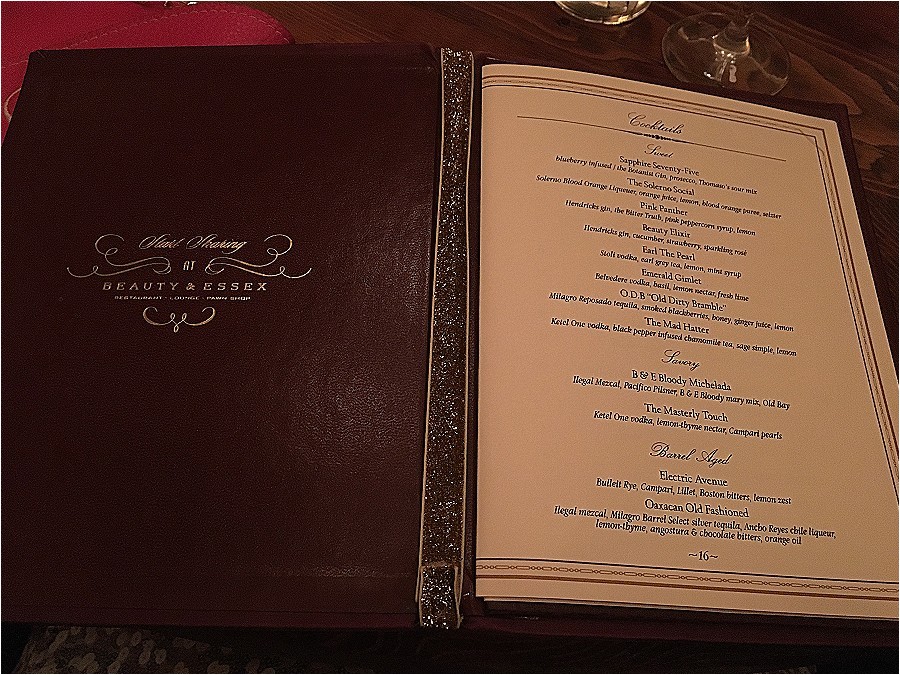 Start Sharing
AT
BEAUTY & ESSEX
RESTAURANT · LOUNGE · PAWN SHOP
Cocktails
Sweet
Sapphire Seventy-Five
blueberry infused / the Botanist Gin, prosecco, Thomaso's sour mix
The Solerno Social
Solerno Blood Orange Liqueur, orange juice, lemon, blood orange puree, seltzer
Pink Panther
Hendricks gin, the Bitter Truth, pink peppercorn syrup, lemon
Beauty Elixir
Hendricks gin, cucumber, strawberry, sparkling rosé
Earl The Pearl
Stoli vodka, earl grey tea, lemon, mint syrup
Emerald Gimlet
Belvedere vodka, basil, lemon nectar, fresh lime
O.D.B "Old Dirty Bramble"
Milagro Reposado tequila, smoked blackberries, honey, ginger juice, lemon
The Mad Hatter
Ketel One vodka, black pepper infused chamomile tea, sage simple, lemon
Savory
B & E Bloody Michelada
Ilegal Mezcal, Pacifico Pilsner, B & E Bloody mary mix, Old Bay
The Masterly Touch
Ketel One vodka, lemon-thyme nectar, Campari pearls
Barrel Aged
Electric Avenue
Bulleit Rye, Campari, Lillet, Boston bitters, lemon zest
Oaxacan Old Fashioned
Ilegal mezcal, Milagro Barrel Select silver tequila, Ancho Reyes chile liqueur,
lemon-thyme, angostura & chocolate bitters, orange oil
~16~